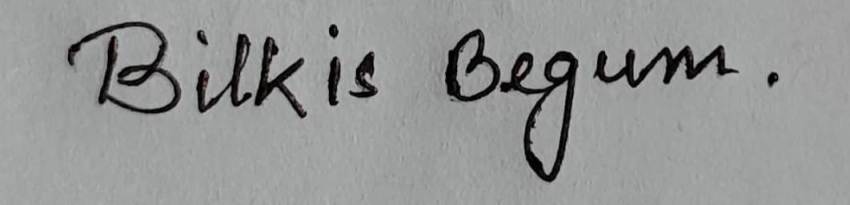 Bilkis Begum.